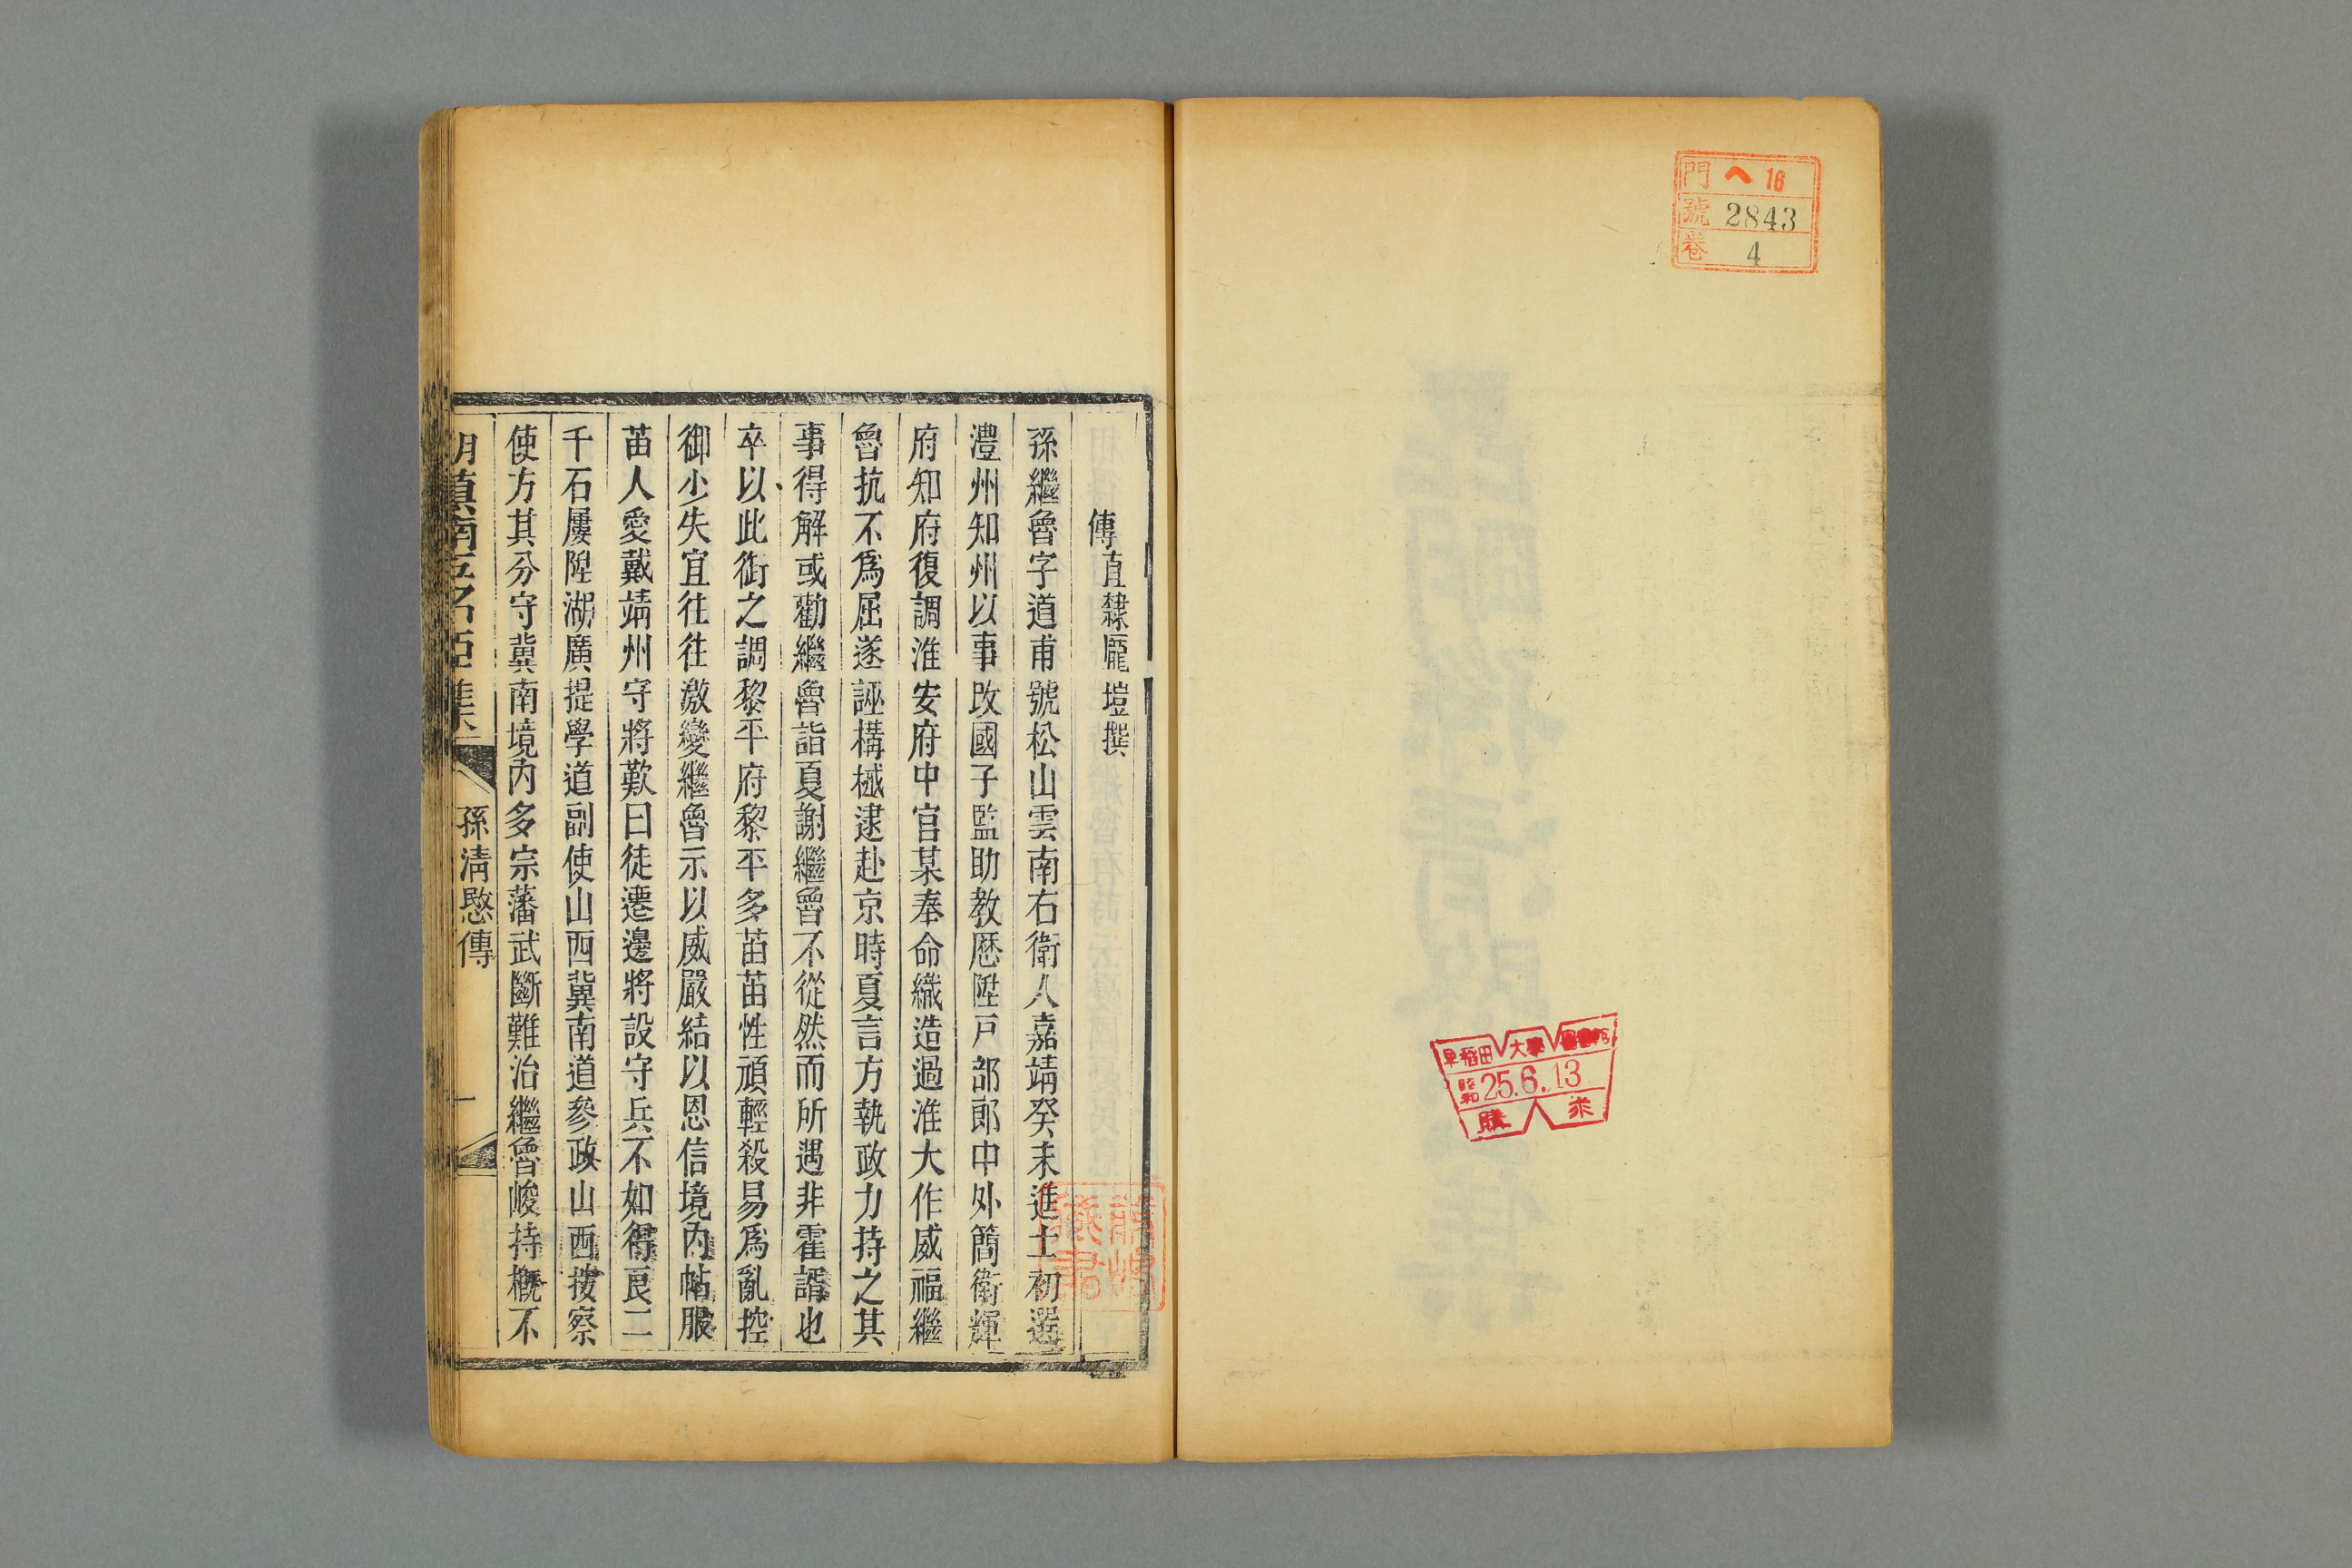 門 ヘ 16
號 2843
卷 4
早稲田大學圖書館
昭和 25.6.13
購求
傳直隸龎塏撰
孫繼魯字道甫號松山雲南右衛人嘉靖癸未進士初選
澧州知州以事改國子監助教歷陞戸部郎中外簡衛輝
府知府復調淮安府中官某奉命織造過淮大作威福繼
魯抗不爲屈遂誣構械逮赴京時夏言方執政力持之其
事得解或勸繼魯詣夏謝繼魯不從然而所遇非霍諝也
卒以此銜之調黎平府黎平多苗苗性頑輕殺易爲亂控
御少失宜往往激變繼魯示以威嚴結以恩信境內帖服
苗人愛戴靖州守將歎曰徒遷邊將設守兵不如得良二
千石屢陞湖廣提學道副使山西冀南道參政山西按察
使方其分守冀南境內多宗藩武斷難治繼魯峻持概不
明滇南五名臣集
孫清愍傳
一